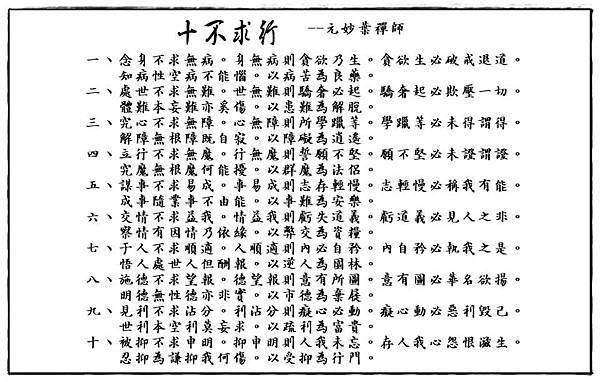 十不求行 --元妙葉禪師
一、念身不求無病。身無病則貪欲乃生。貪欲生必破戒退道。
知病性空病不能惱。以病苦為良藥。
二、處世不求無難。世無難則驕奢必起。驕奢起必欺壓一切。
體難本妄難亦奚傷。以患難為解脫。
三、究心不求無障。心無障則所學躐等。學躐等必未得謂得。
解障無根障既自寂。以障礙為逍遙。
四、立行不求無魔。行無魔則誓願不堅。願不堅必未證謂證。
究魔無根魔何能擾。以群魔為法侶。
五、謀事不求易成。事易成則志存輕慢。志輕慢必稱我有能。
成事隨業事不由能。以事難為安樂。
六、交情不求益我。情益我則虧失道義。虧道義必見人之非。
察情有因情乃依緣。以弊交為資糧。
七、于人不求順適。人順適則內必自矜。內自矜必執我之是。
悟人處世人但酬報。以逆人為園林。
八、施德不求望報。德望報則意有所圖。意有圖必華名欲揚。
明德無性德亦非實。以市德為棄屣。
九、見利不求沾分。利沾分則癡心必動。癡心動必惡利毀己。
世利本空利莫妄求。以疏利為富貴。
十、被抑不求申明。抑申明則人我未忘。存人我心怨恨滋生。
忍抑為謙抑我何傷。以受抑為行門。